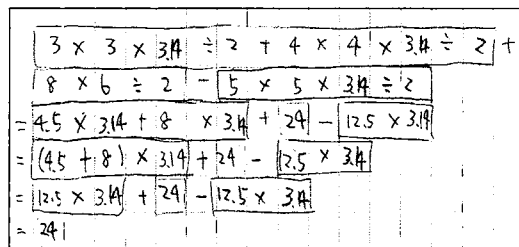 3 × 3 × 3.14 ÷ 2 + 4 × 4 × 3.14 ÷ 2 +
8 × 6 ÷ 2 - 5 × 5 × 3.14 ÷ 2
= 4.5 × 3.14 + 8 × 3.14 + 24 - 12.5 × 3.14
= (4.5 + 8) × 3.14 + 24 - 12.5 × 3.14
= 12.5 × 3.14 + 24 - 12.5 × 3.14
= 24